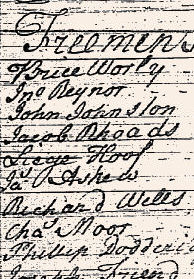 Freemens
Brice Worly
Jno Reynor
John Johnston
Jacob Rhoads
Hoof
Jas Askew
Richard Wells
Chas Moor
Phillip Dodderi
Joseph Friend